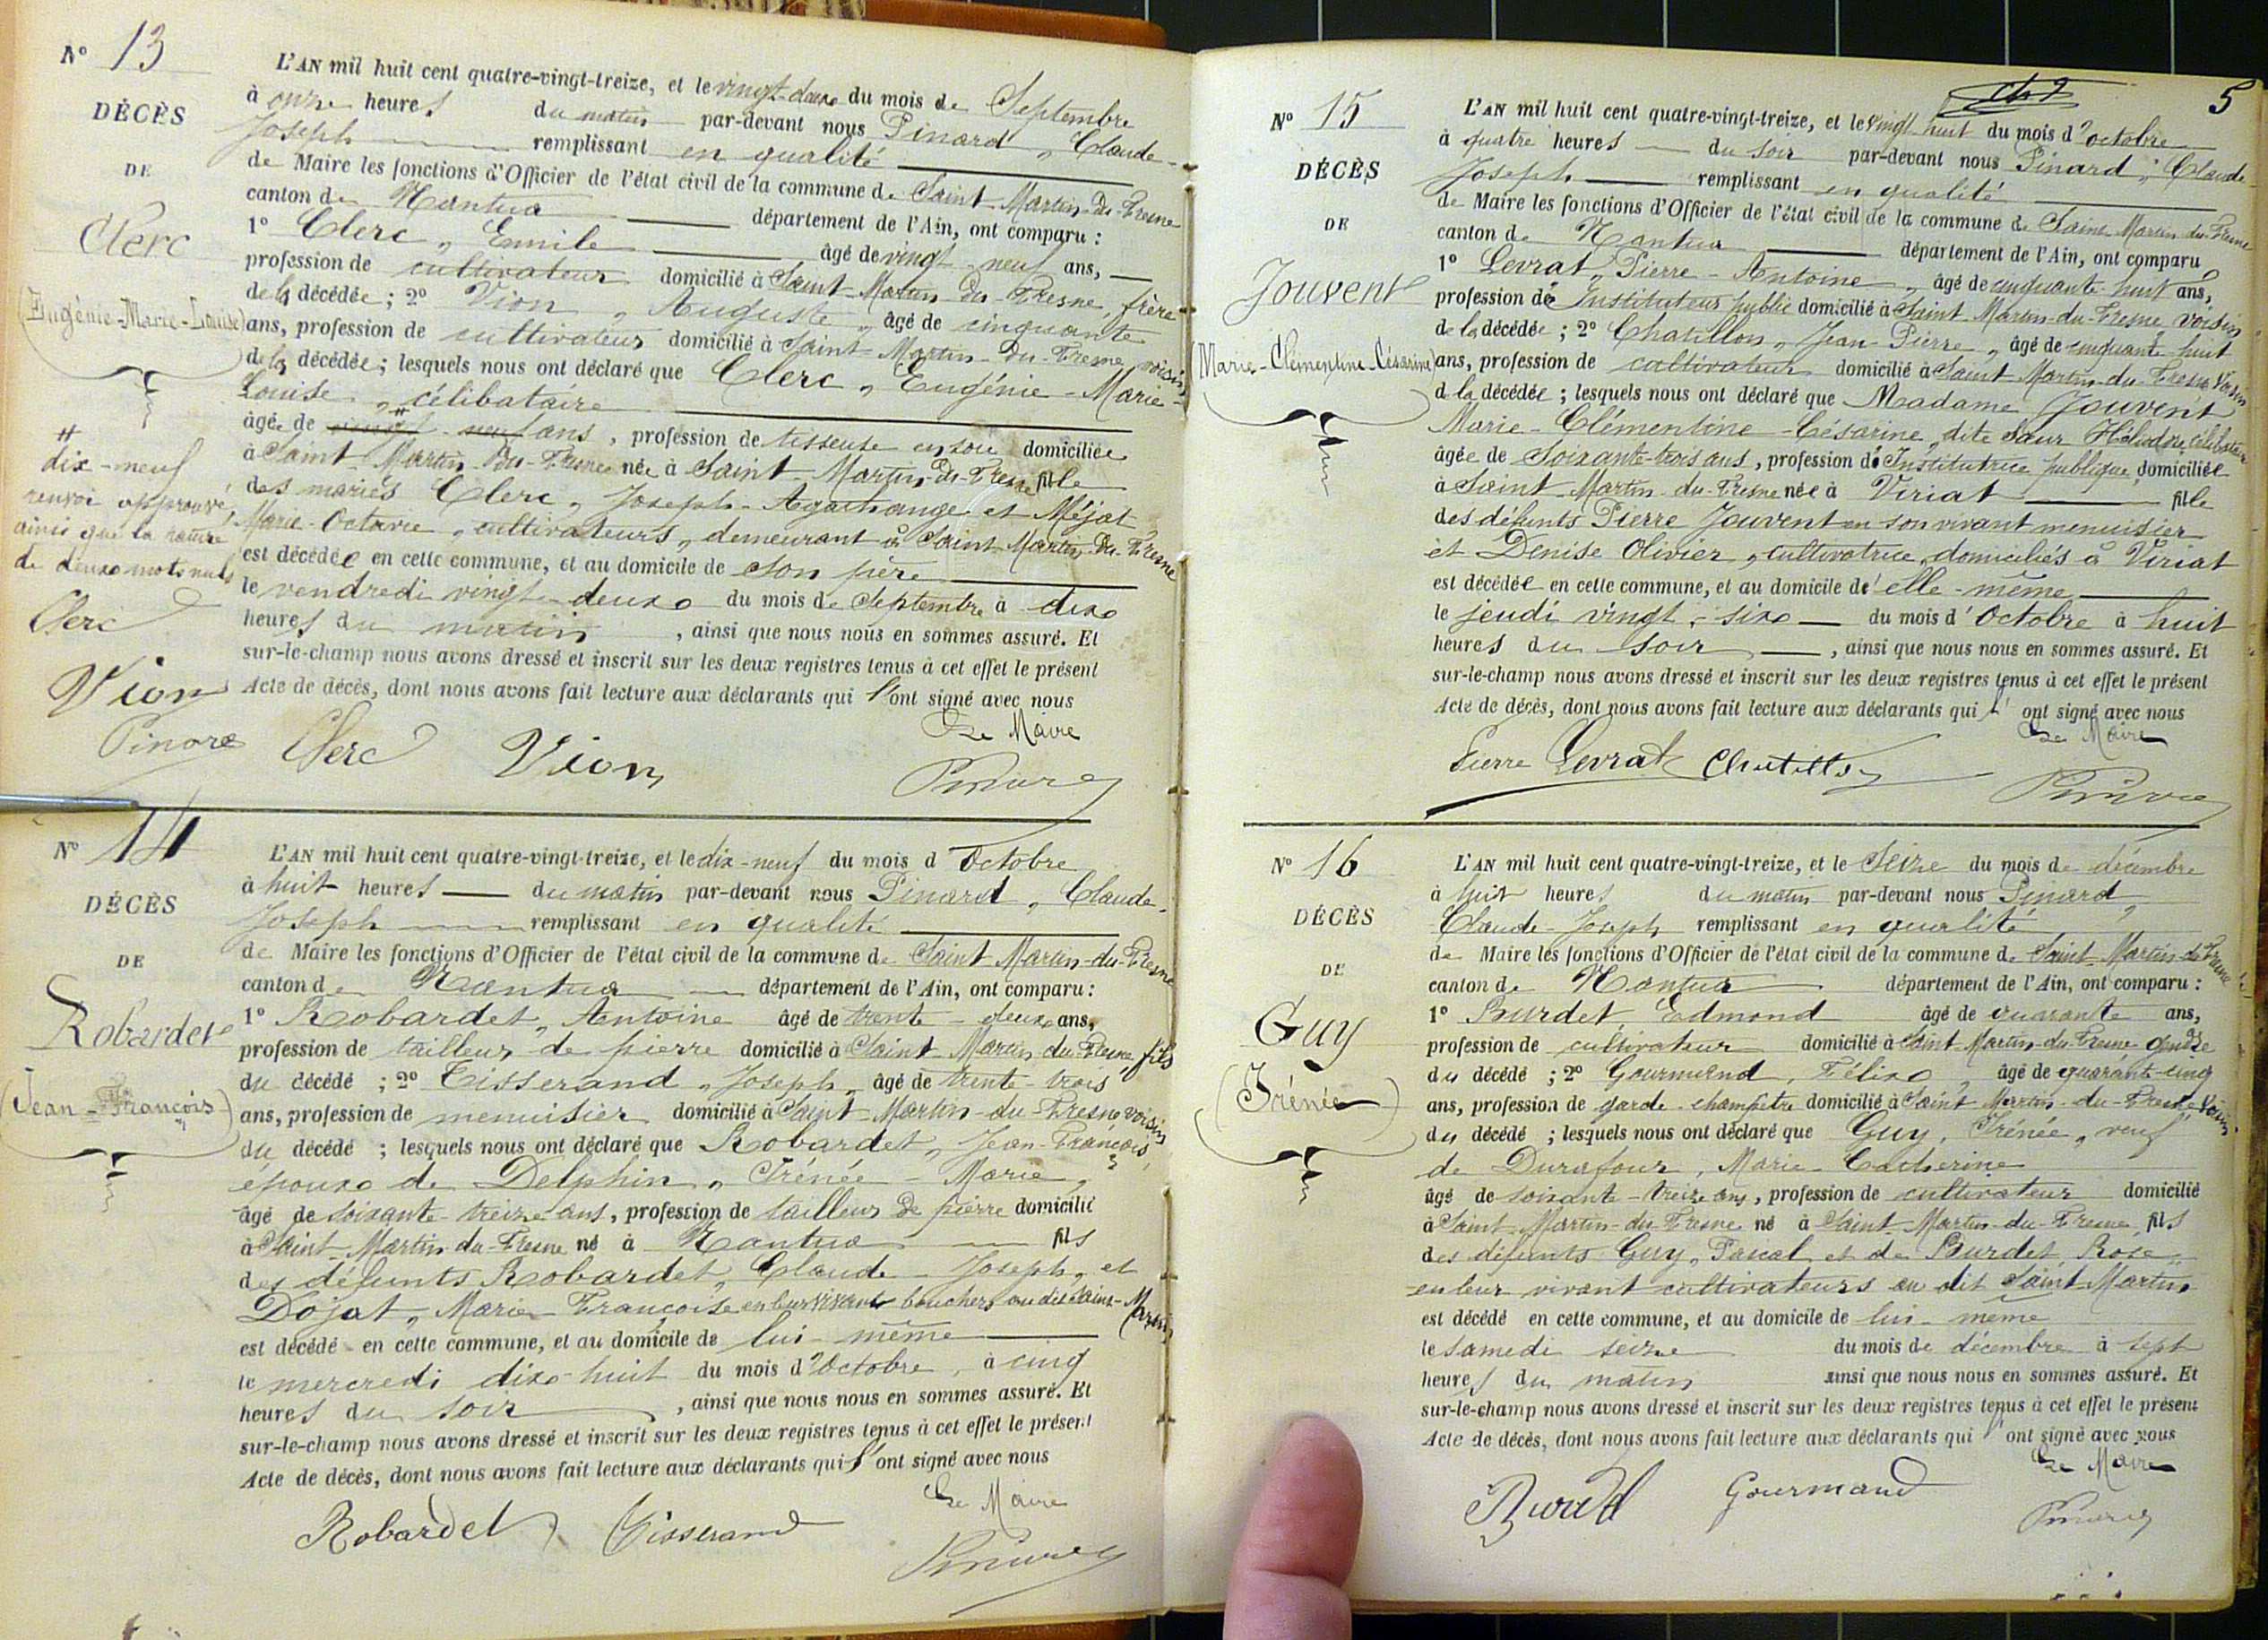 N° 13
DÉCÈS
DE
Clerc
(Eugénie-Marie-Louise)
#
dix-neuf
renvoi approuvé,
ainsi que la rature
de deux mots nuls
Clerc
Vion
Pinard
L'AN mil huit cent quatre-vingt-treize, et le vingt-deux du mois de Septembre
à onze heures du matin par-devant nous Pinard, Claude-
Joseph remplissant en qualité
de Maire les fonctions d'Officier de l'état civil de la commune de Saint-Martin-du-Fresne
canton de Nantua département de l'Ain, ont comparu :
1° Clerc, Emile âgé de vingt-neuf ans,
profession de cultivateur domicilié à Saint-Martin-du-Fresne, frère
de la décédée ; 2° Vion, Auguste, âgé de cinquante
ans, profession de cultivateur domicilié à Saint-Martin-du-Fresne, voisin
de la décédée ; lesquels nous ont déclaré que Clerc, Eugénie-Marie-
Louise, célibataire
âgée de vingt-neuf # ans, profession de tisseuse en soie domiciliée
à Saint-Martin-du-Fresne née à Saint-Martin-du-Fresne fille
des mariés Clerc, Joseph-Agathange et Méjat
Marie-Octavie, cultivateurs, demeurant à Saint-Martin-du-Fresne
est décédée en cette commune, et au domicile de son père
le vendredi vingt-deux du mois de Septembre à dix
heures du matin, ainsi que nous nous en sommes assuré. Et
sur-le-champ nous avons dressé et inscrit sur les deux registres tenus à cet effet le présent
Acte de décès, dont nous avons fait lecture aux déclarants qui l'ont signé avec nous
Le Maire
Clerc Vion Pinard
N° 14
DÉCÈS
DE
Robardet
(Jean-François)
L'AN mil huit cent quatre-vingt-treize, et le dix-neuf du mois d'Octobre
à huit heures du matin par-devant nous Pinard, Claude-
Joseph remplissant en qualité
de Maire les fonctions d'Officier de l'état civil de la commune de Saint-Martin-du-Fresne
canton de Nantua département de l'Ain, ont comparu :
1° Robardet, Antoine âgé de trente-deux ans,
profession de tailleur de pierre domicilié à Saint-Martin-du-Fresne, fils
du décédé ; 2° Tisserand, Joseph, âgé de trente-trois
ans, profession de menuisier domicilié à Saint-Martin-du-Fresne, voisin
du décédé ; lesquels nous ont déclaré que Robardet, Jean-François,
époux de Delphin, Irénée-Marie,
âgé de soixante-treize ans, profession de tailleur de pierre domicilié
à Saint-Martin-du-Fresne né à Nantua fils
des défunts Robardet, Claude-Joseph, et
Dojat, Marie-Françoise en leur vivant bouchers au dit Saint-Martin
est décédé en cette commune, et au domicile de lui-même
le mercredi dix-huit du mois d'Octobre, à cinq
heures du soir, ainsi que nous nous en sommes assuré. Et
sur-le-champ nous avons dressé et inscrit sur les deux registres tenus à cet effet le présent
Acte de décès, dont nous avons fait lecture aux déclarants qui l'ont signé avec nous
Le Maire
Robardet Tisserand Pinard
5
N° 15
DÉCÈS
DE
Jouvent
(Marie-Clémentine-Césarine)
L'AN mil huit cent quatre-vingt-treize, et le vingt-huit du mois d'octobre
à quatre heures du soir par-devant nous Pinard, Claude-
Joseph remplissant en qualité
de Maire les fonctions d'Officier de l'état civil de la commune de Saint-Martin-du-Fresne
canton de Nantua département de l'Ain, ont comparu
1° Levrat, Pierre-Antoine, âgé de cinquante-huit ans,
profession d'Instituteur public domicilié à Saint-Martin-du-Fresne, voisin
de la décédée ; 2° Chatillon, Jean-Pierre, âgé de cinquante-huit
ans, profession de cultivateur domicilié à Saint-Martin-du-Fresne, voisin
de la décédée ; lesquels nous ont déclaré que Madame Jouvent
Marie-Clémentine-Césarine, dite Sœur Héliodore, célibataire
âgée de soixante-trois ans, profession d'Institutrice publique, domiciliée
à Saint-Martin-du-Fresne née à Viriat fille
des défunts Pierre Jouvent en son vivant menuisier
et Denise Olivier, cultivatrice, domiciliés à Viriat
est décédée en cette commune, et au domicile d'elle-même
le jeudi vingt-six du mois d'Octobre à huit
heures du soir, ainsi que nous nous en sommes assuré. Et
sur-le-champ nous avons dressé et inscrit sur les deux registres tenus à cet effet le présent
Acte de décès, dont nous avons fait lecture aux déclarants qui l'ont signé avec nous
Le Maire
Pierre Levrat Chatillon Pinard
N° 16
DÉCÈS
DE
Guy
(Irénée)
L'AN mil huit cent quatre-vingt-treize, et le Seize du mois de décembre
à huit heures du matin par-devant nous Pinard,
Claude-Joseph remplissant en qualité
de Maire les fonctions d'Officier de l'état civil de la commune de Saint-Martin-du-Fresne
canton de Nantua département de l'Ain, ont comparu :
1° Burdet, Edmond âgé de quarante ans,
profession de cultivateur domicilié à Saint-Martin-du-Fresne gendre
du décédé ; 2° Gourmand, Félix, âgé de quarante-cinq
ans, profession de garde-champêtre domicilié à Saint-Martin-du-Fresne, voisin
du décédé ; lesquels nous ont déclaré que Guy, Irénée, veuf
de Durafour, Marie-Catherine
âgé de soixante-treize ans, profession de cultivateur domicilié
à Saint-Martin-du-Fresne né à Saint-Martin-du-Fresne, fils
des défunts Guy, Pascal et de Burdet, Rose,
en leur vivant cultivateurs au dit Saint-Martin
est décédé en cette commune, et au domicile de lui-même
le samedi seize du mois de décembre à sept
heures du matin ainsi que nous nous en sommes assuré. Et
sur-le-champ nous avons dressé et inscrit sur les deux registres tenus à cet effet le présent
Acte de décès, dont nous avons fait lecture aux déclarants qui l'ont signé avec nous
Le Maire
Burdet Gourmand Pinard